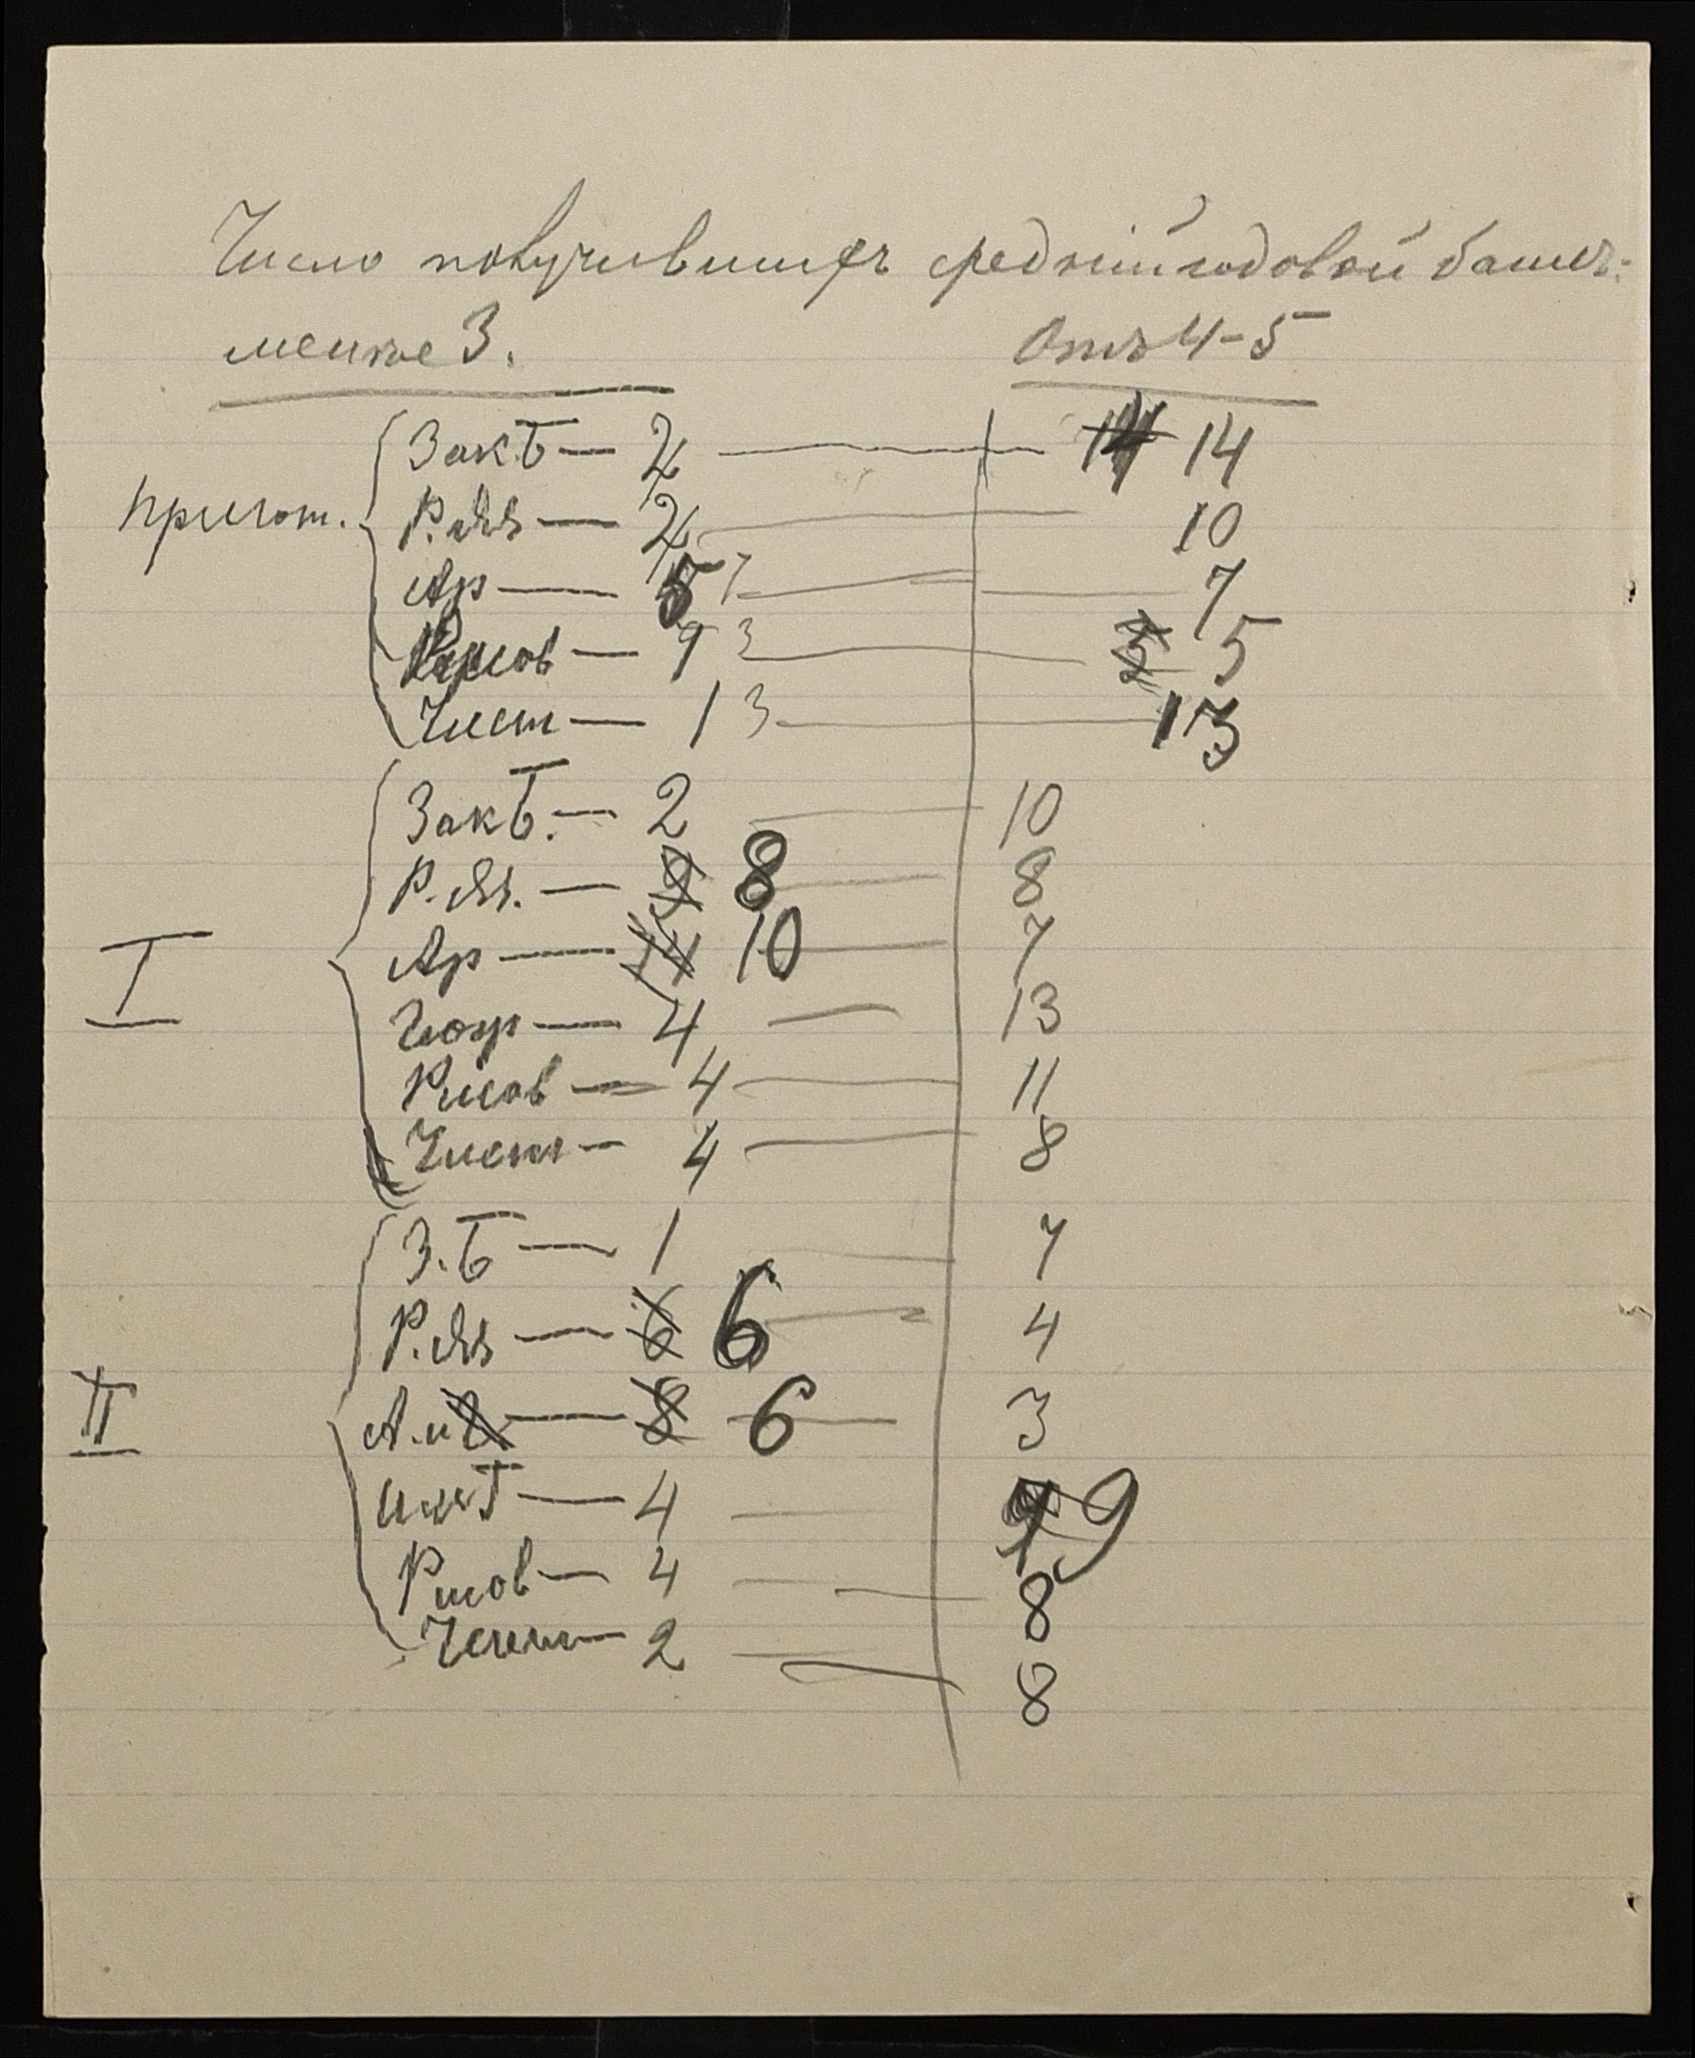 Число получившихъ средній годовой баллъ:
менѣе 3. Отъ 4-5
Зак Б — 2 — 14 14
пригот. Р. Яз — 2 — 10
Ар — 5 7 — 7
Рисов — 9 3 — 5 5
Чист — 1 3 — 13
Зак Б. — 2 — 10
Р. Яз. — 9 8 — 8
I Ар — 14 10 — 7
Геогр — 4 — 13
Рисов — 4 — 11
Чист — 4 — 8
З. Б — 1 — 7
Р. Яз — 6 6 — 4
II А. — 8 6 — 3
— 4 — 9
Рисов — 4 — 8
Чист — 2 — 8